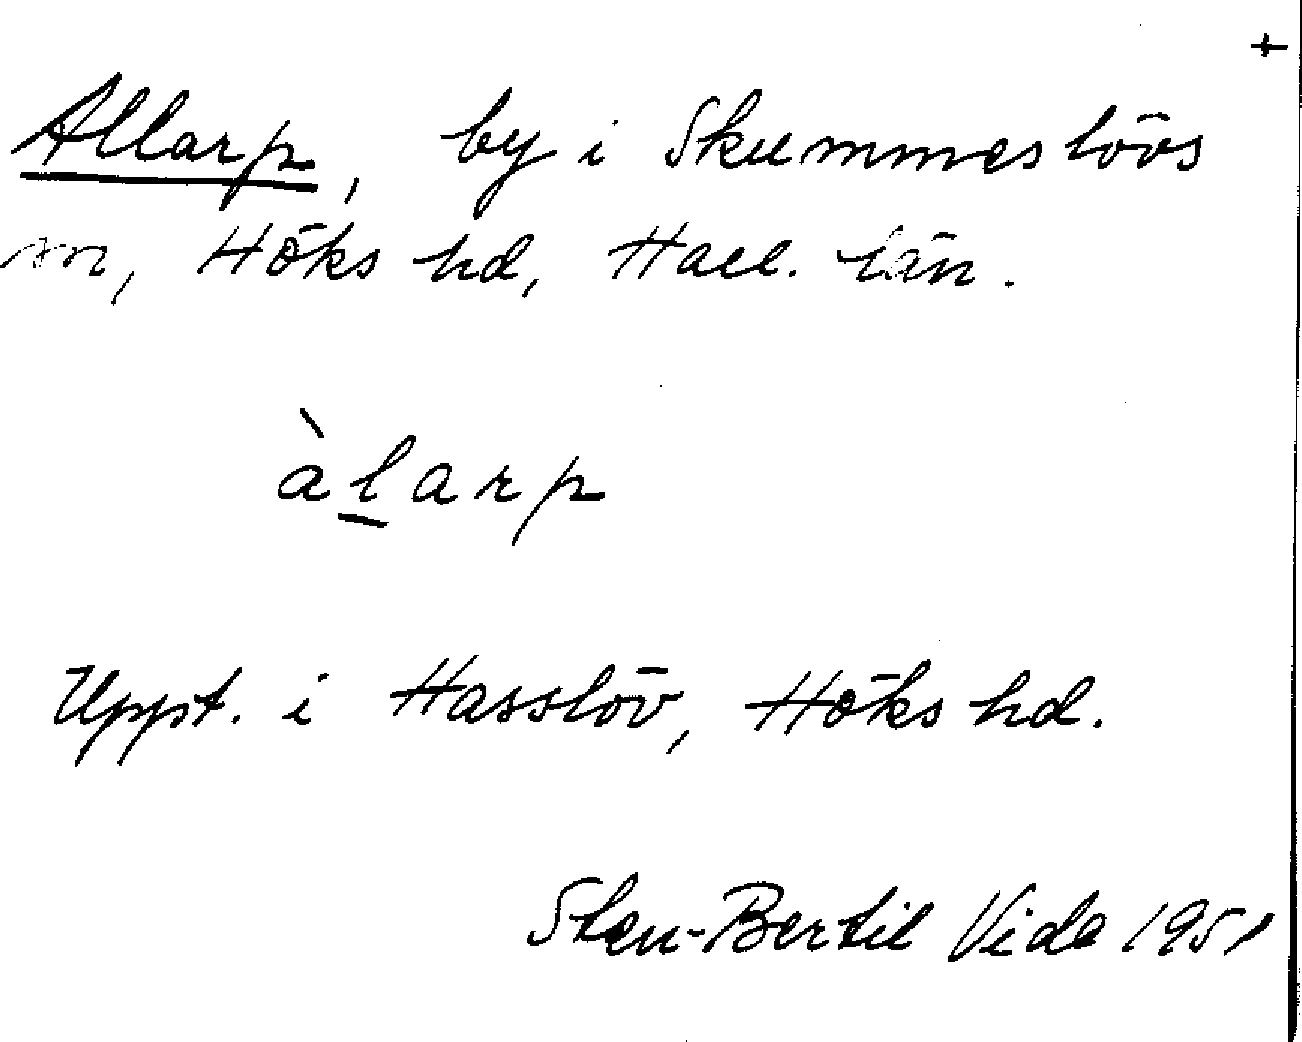 +
Allarp, by i Skummeslövs
sn, Höks hd, Hall. län.
àlarp
Uppt. i Hasslöv, Höks hd.
Sten-Bertil Vide 1951